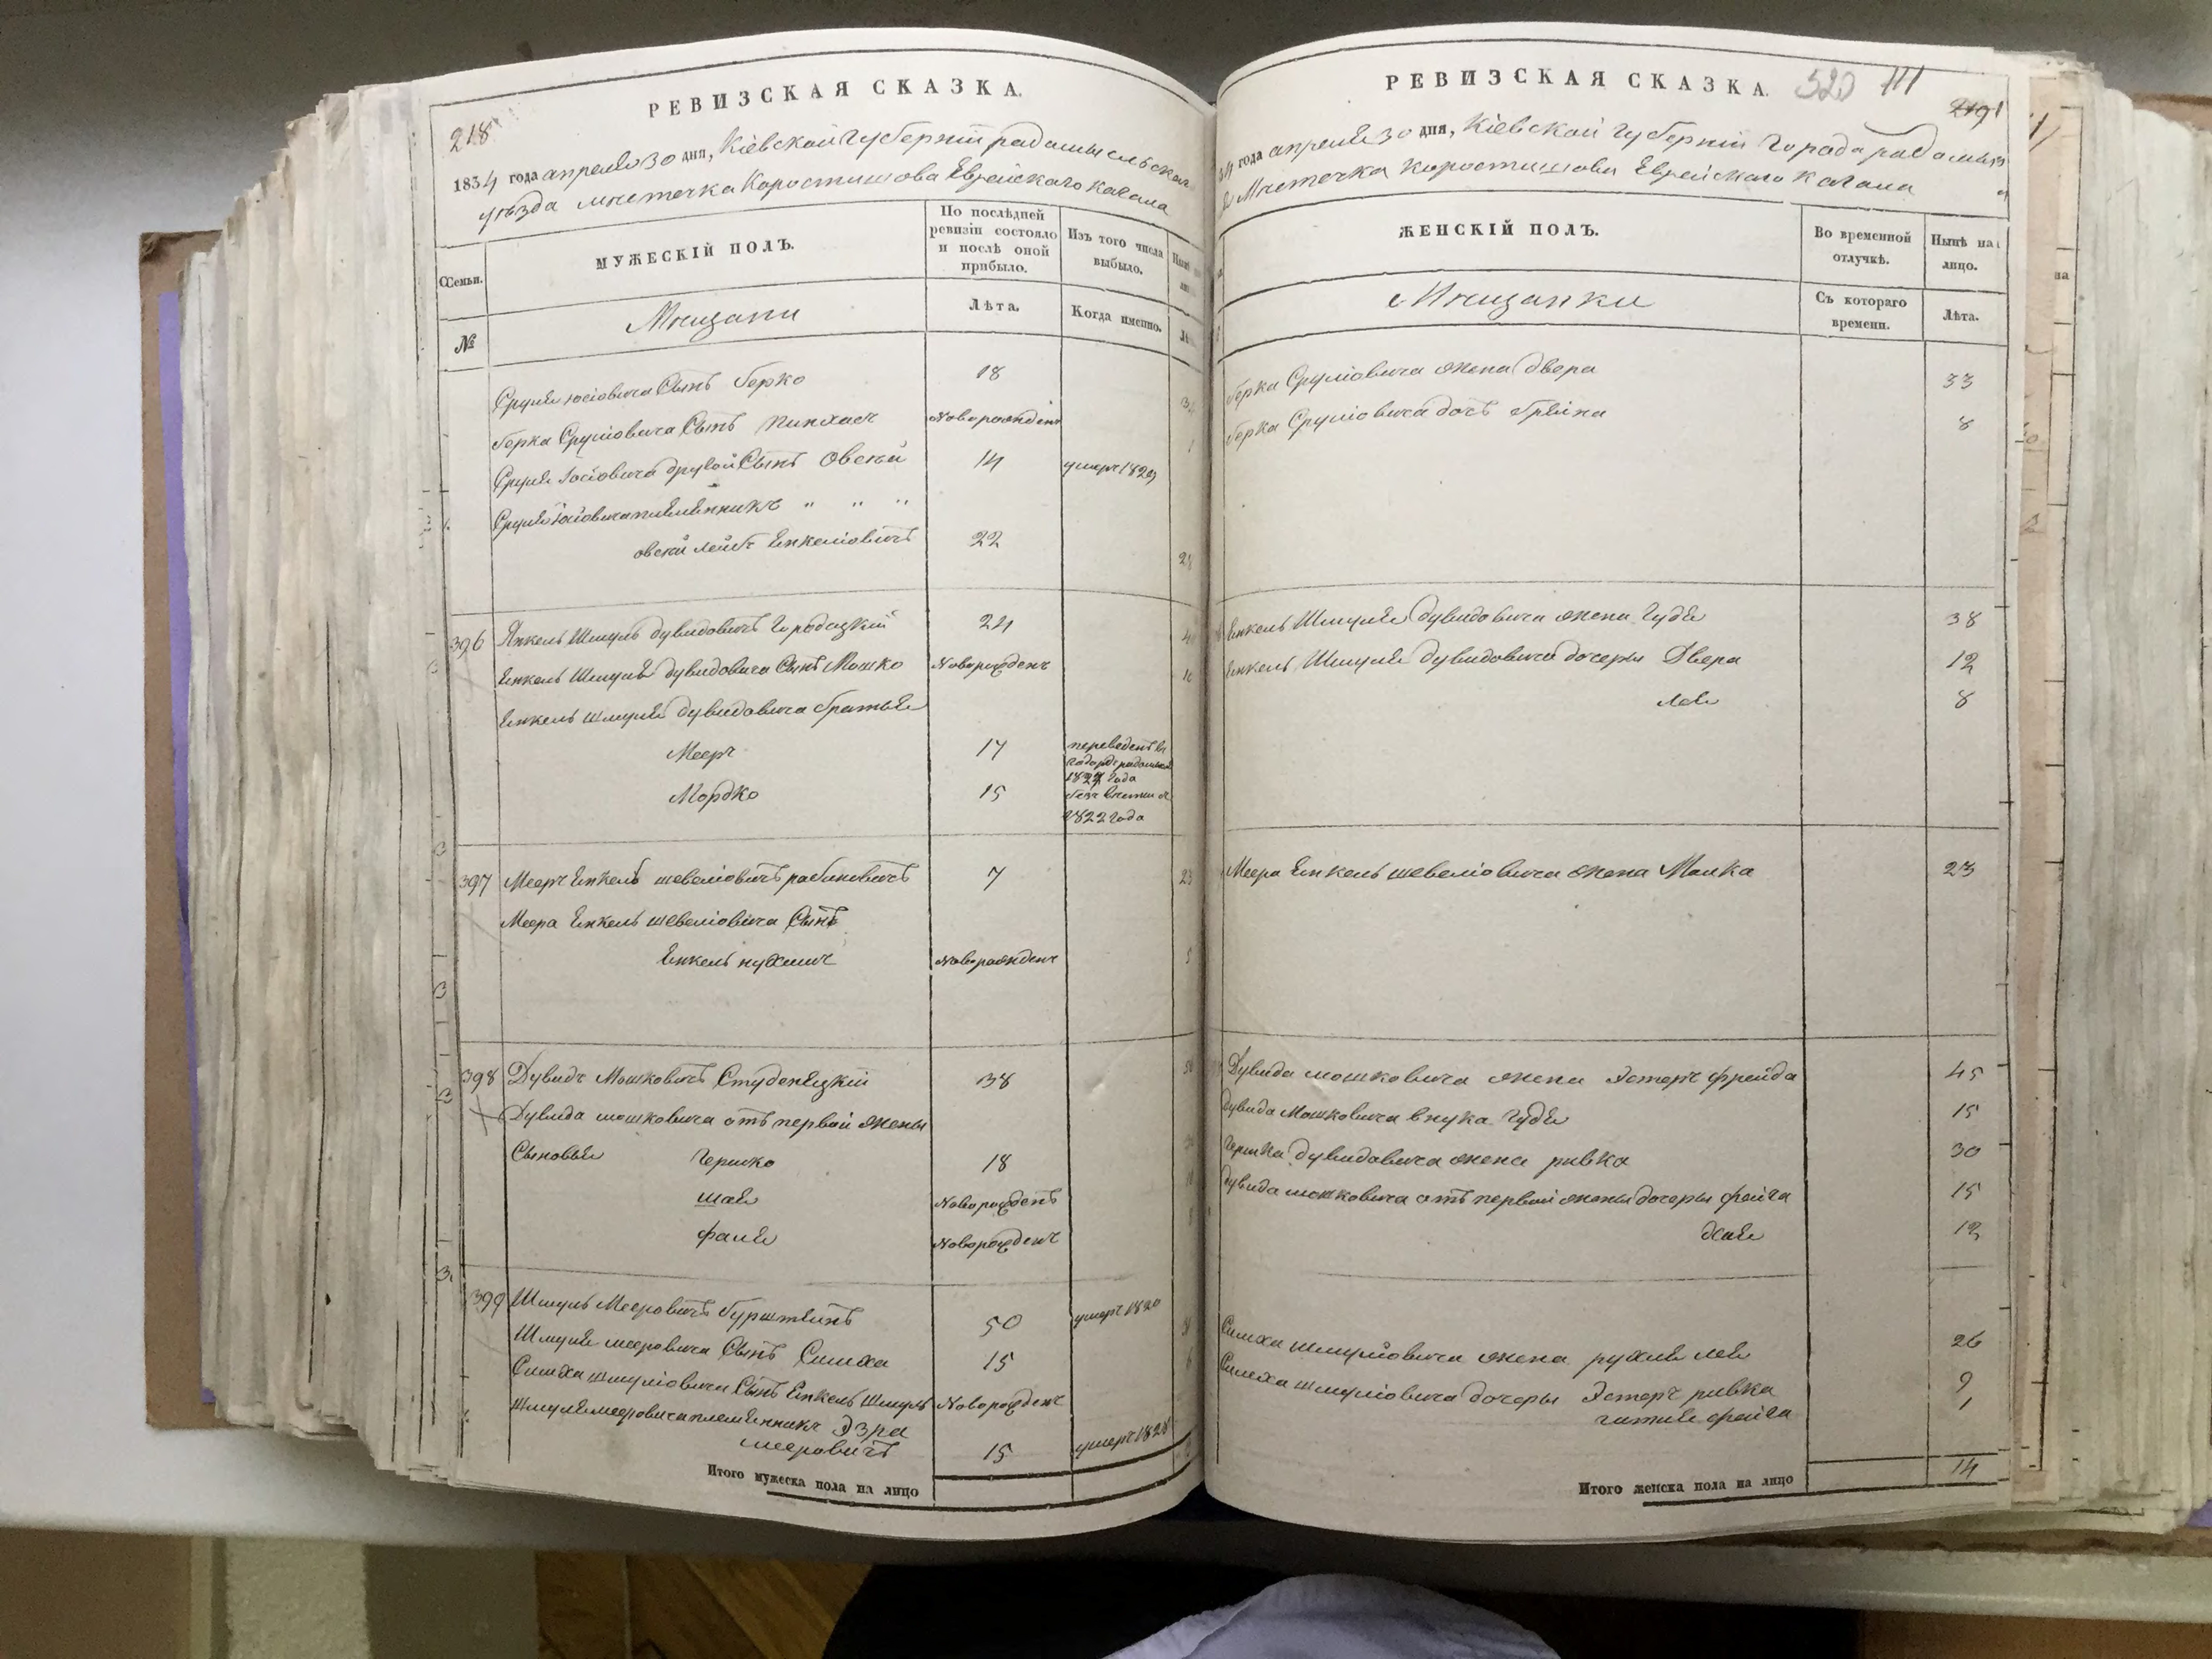 РЕВИЗСКАЯ СКАЗКА.
218
1834 года апреля 30 дня, Кіевской Губерніи радомысльского
уѣзда мѣстечка Коростишова Еврейскаго кагала
Семьи.
МУЖЕСКІЙ ПОЛЪ.
По послѣдней ревизіи состояло и послѣ оной прибыло.
Изъ того числа выбыло.
№
Мѣщани
Лѣта.
Когда именно.
Сруля Іосіовича Сынъ Берко 18
Берка Сруліовича Сынъ Пинхасъ Новорожденъ
Сруля Іосіовича другой Сынъ Овсѣй 14 умеръ 1829
Сруля Іосіовича племѣнникъ " " "
овсѣй лейбъ Енкеліовичъ 22 28
396 Янкель Шмуль дувидовичъ Городецкій 24
Енкель Шмуля дувидовича Сынъ Мошко Новорожденъ 10
Енкель шмуля дувидовича братья
Мееръ 17 переведенъ въ
1827 года
Мордко 15
1822 года
397 Мееръ Енкель шевеліовичъ рабиновичъ 7 23
Меера Енкель шевеліовича Сынъ
Енкель нухимъ Новорожденъ 5
398 Дувидъ Мошковичъ Студенѣцкій 38
Дувида мошковича отъ первой жены
Сыновья Гершко 18
шая Новорожденъ
Новорожденъ
399 Шмуль Мееровичъ бурштинъ 50 умеръ 1820
Шмуля мееровича Сынъ Симха 15
Симха шмуліовича Сынъ Енкель Шмуль Новорожденъ
Шмуля мееровича племѣнникъ Эзра
мееровичъ 15 умеръ 1828
Итого мужеска пола на лицо
РЕВИЗСКАЯ СКАЗКА. 323 111
года апреля 30 дня, Кіевской Губерніи Города
Мѣстечка Коростишова Еврейскаго Кагала
ЖЕНСКІЙ ПОЛЪ.
Во временной отлучкѣ.
Нынѣ на лицо.
Мѣщанки
Съ котораго времени.
Лѣта.
Берка Сруліовича жена Двера 33
Берка Сруліовича дочь брѣйна 8
Енкель Шмуля Дувидовича жена Гудя 38
Енкель Шмуля дувидовича дочеры Двера 12
лея 8
Меера Енкель шевеліовича жена Малка 23
Дувида мошковича жена Эстеръ фрейда 45
Дувида Мошковича внука Гудя 15
Гершка дувидовича жена ривка 30
Дувида мошковича отъ первой жены дочеры фейга 15
хая 12
Симха шмуліовича жена рухля лея 26
Симха шмуліовича дочеры Эстеръ ривка 9
гитля фейга 1
Итого женска пола на лицо 14